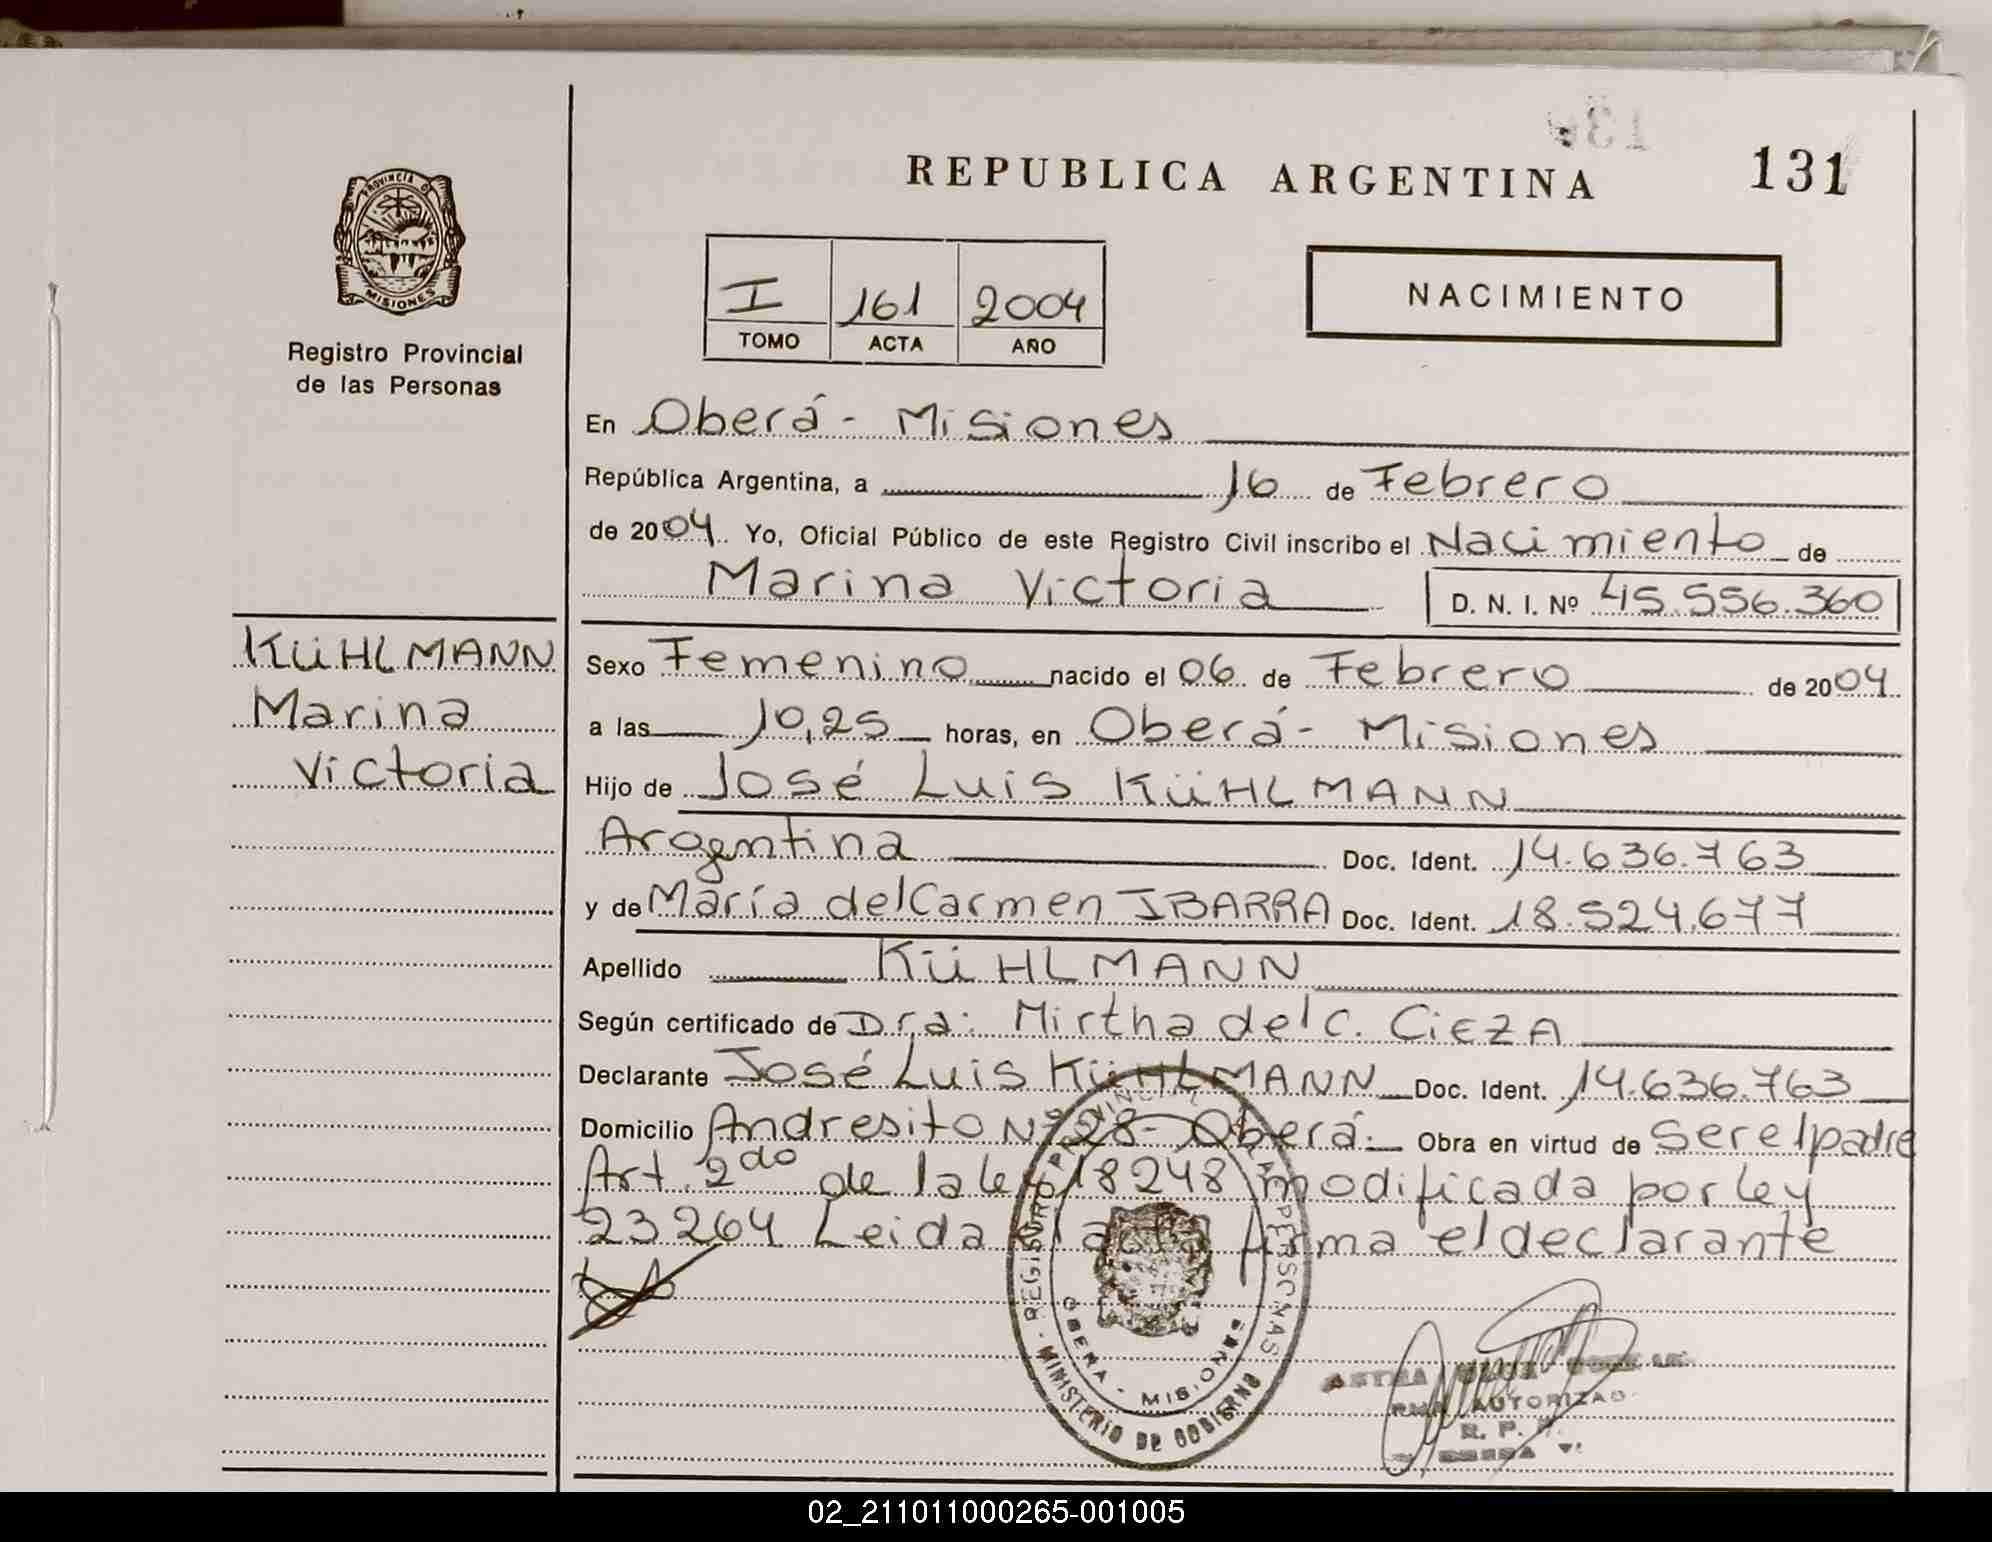 REPUBLICA ARGENTINA
131
PROVINCIA D
MISIONES
Registro Provincial
de las Personas
I 161 2004
TOMO ACTA AÑO
NACIMIENTO
En Oberá - Misiones
República Argentina, a 16 de Febrero
de 2004 Yo, Oficial Público de este Registro Civil inscribo el Nacimiento de
Marina Victoria D. N. I. Nº 45.556.360
KÜHLMANN
Marina
Victoria
Sexo Femenino nacido el 06 de Febrero de 2004
a las 10,25 horas, en Oberá - Misiones
Hijo de José Luis KÜHLMANN
Argentina Doc. Ident. 14.636.763
y de María del Carmen IBARRA Doc. Ident. 18.524.677
Apellido KÜHLMANN
Según certificado de Dra: Mirtha del C. CIEZA
Declarante José Luis KÜHLMANN Doc. Ident. 14.636.763
Domicilio Andresito Nº 28 - Oberá.- Obra en virtud de ser el padre
Art. 2do de la ley 18248 modificada por ley
23264 Leida el acta firma el declarante
REGISTRO PROVINCIAL DE LAS PERSONAS
MINISTERIO DE GOBIERNO
OBERA - MISIONES
AUTORIZAD
R. P.
OBERA
02_211011000265-001005